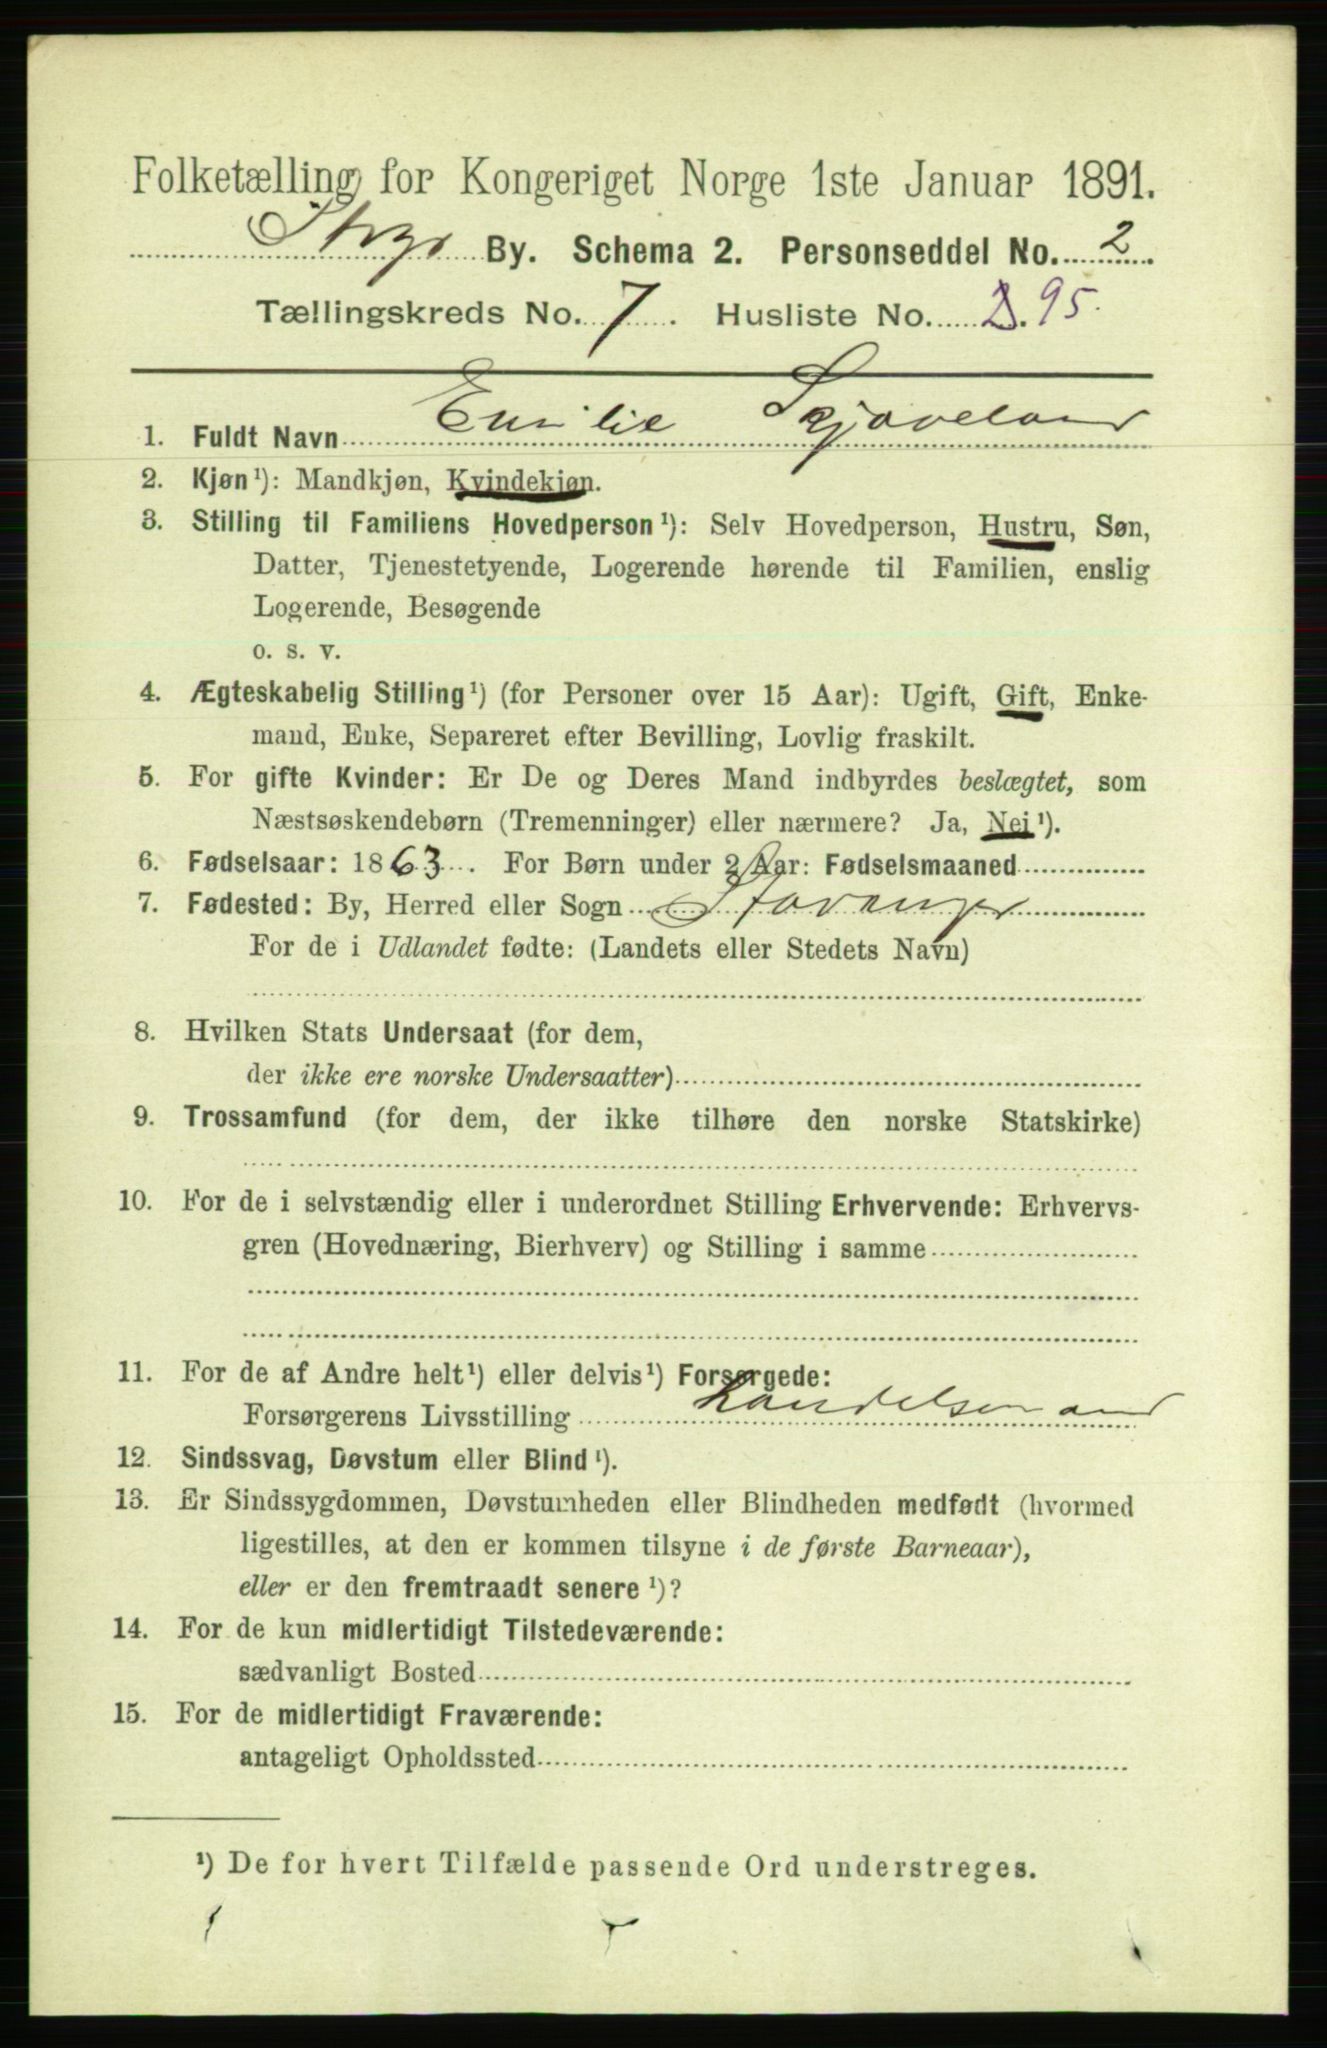 Folketælling for Kongeriget Norge 1ste Januar 1891.
By. Schema 2. Personseddel No. 2
Tællingskreds No. 7. Husliste No. 95.
1. Fuldt Navn Emilie Skjæveland
2. Kjøn¹): Mandkjøn, Kvindekjøn.
3. Stilling til Familiens Hovedperson¹): Selv Hovedperson, Hustru, Søn,
Datter, Tjenestetyende, Logerende hørende til Familien, enslig
Logerende, Besøgende
o. s. v.
4. Ægteskabelig Stilling¹) (for Personer over 15 Aar): Ugift, Gift, Enke-
mand, Enke, Separeret efter Bevilling, Lovlig fraskilt.
5. For gifte Kvinder: Er De og Deres Mand indbyrdes beslægtet, som
Næstsøskendebørn (Tremenninger) eller nærmere? Ja, Nei¹).
6. Fødselsaar: 1863. For Børn under 2 Aar: Fødselsmaaned
7. Fødested: By, Herred eller Sogn Stavanger
For de i Udlandet fødte: (Landets eller Stedets Navn)
8. Hvilken Stats Undersaat (for dem,
der ikke ere norske Undersaatter)
9. Trossamfund (for dem, der ikke tilhøre den norske Statskirke)
10. For de i selvstændig eller i underordnet Stilling Erhvervende: Erhvervs-
gren (Hovednæring, Bierhverv) og Stilling i samme
11. For de af Andre helt¹) eller delvis¹) Forsørgede:
Forsørgerens Livsstilling Handelsmand
12. Sindssvag, Døvstum eller Blind¹).
13. Er Sindssygdommen, Døvstumheden eller Blindheden medfødt (hvormed
ligestilles, at den er kommen tilsyne i de første Barneaar),
eller er den fremtraadt senere¹)?
14. For de kun midlertidigt Tilstedeværende:
sædvanligt Bosted
15. For de midlertidigt Fraværende:
antageligt Opholdssted
¹) De for hvert Tilfælde passende Ord understreges.